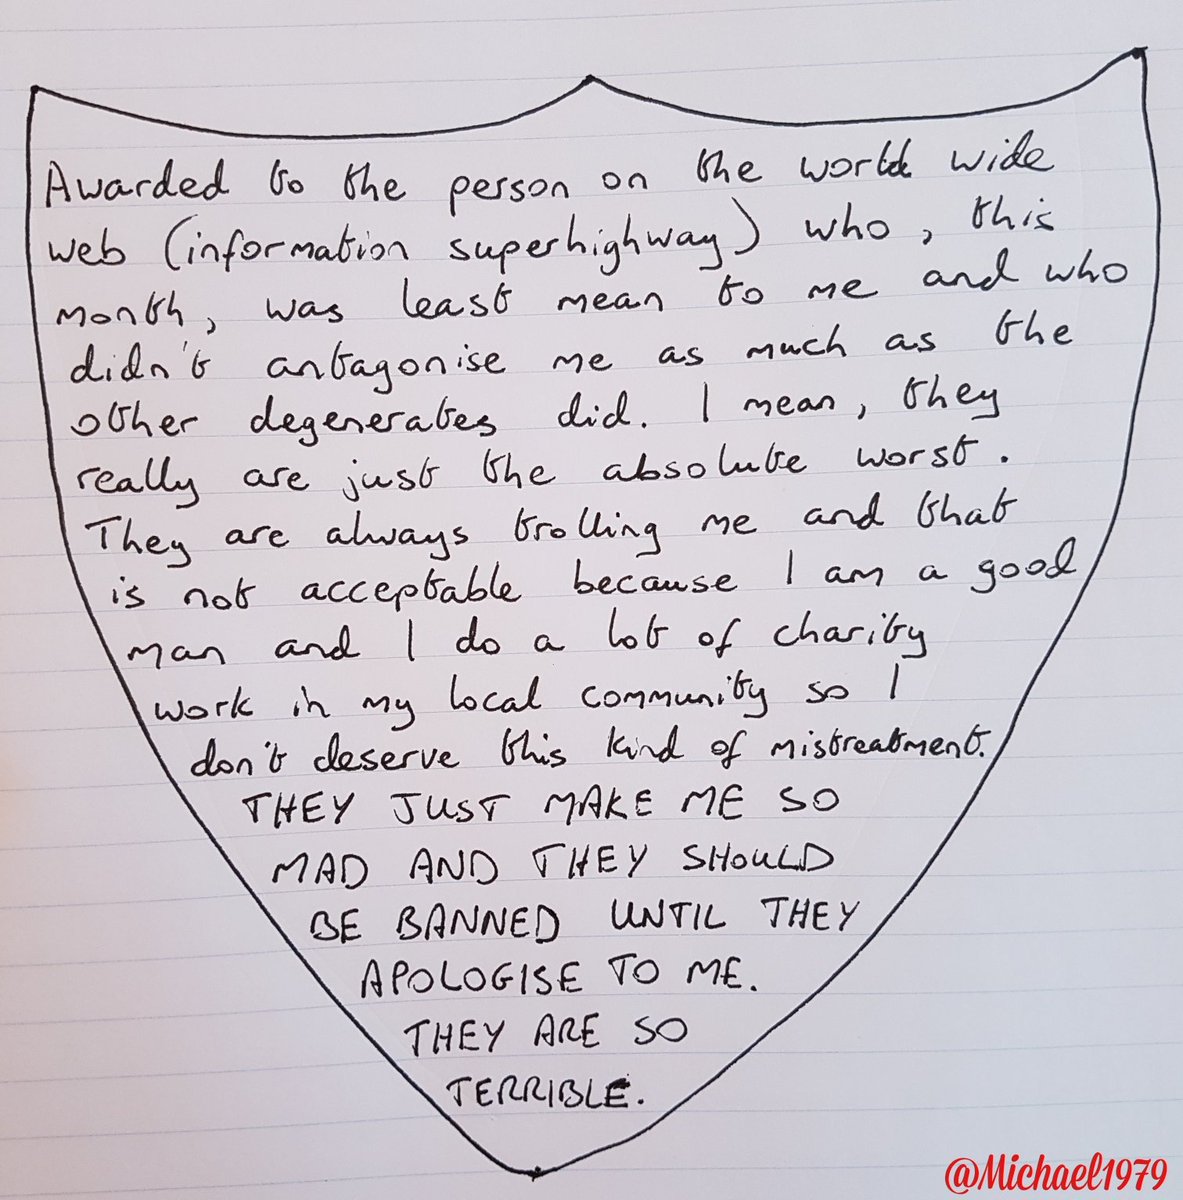 Awarded to the person on the world wide
web (information superhighway) who, this
month, was least mean to me and who
didn't antagonise me as much as the
other degenerates did. I mean, they
really are just the absolute worst.
They are always trolling me and that
is not acceptable because I am a good
man and I do a lot of charity
work in my local community so I
don't deserve this kind of mistreatment.
THEY JUST MAKE ME SO
MAD AND THEY SHOULD
BE BANNED UNTIL THEY
APOLOGISE TO ME.
THEY ARE SO
TERRIBLE.
@Michael1979